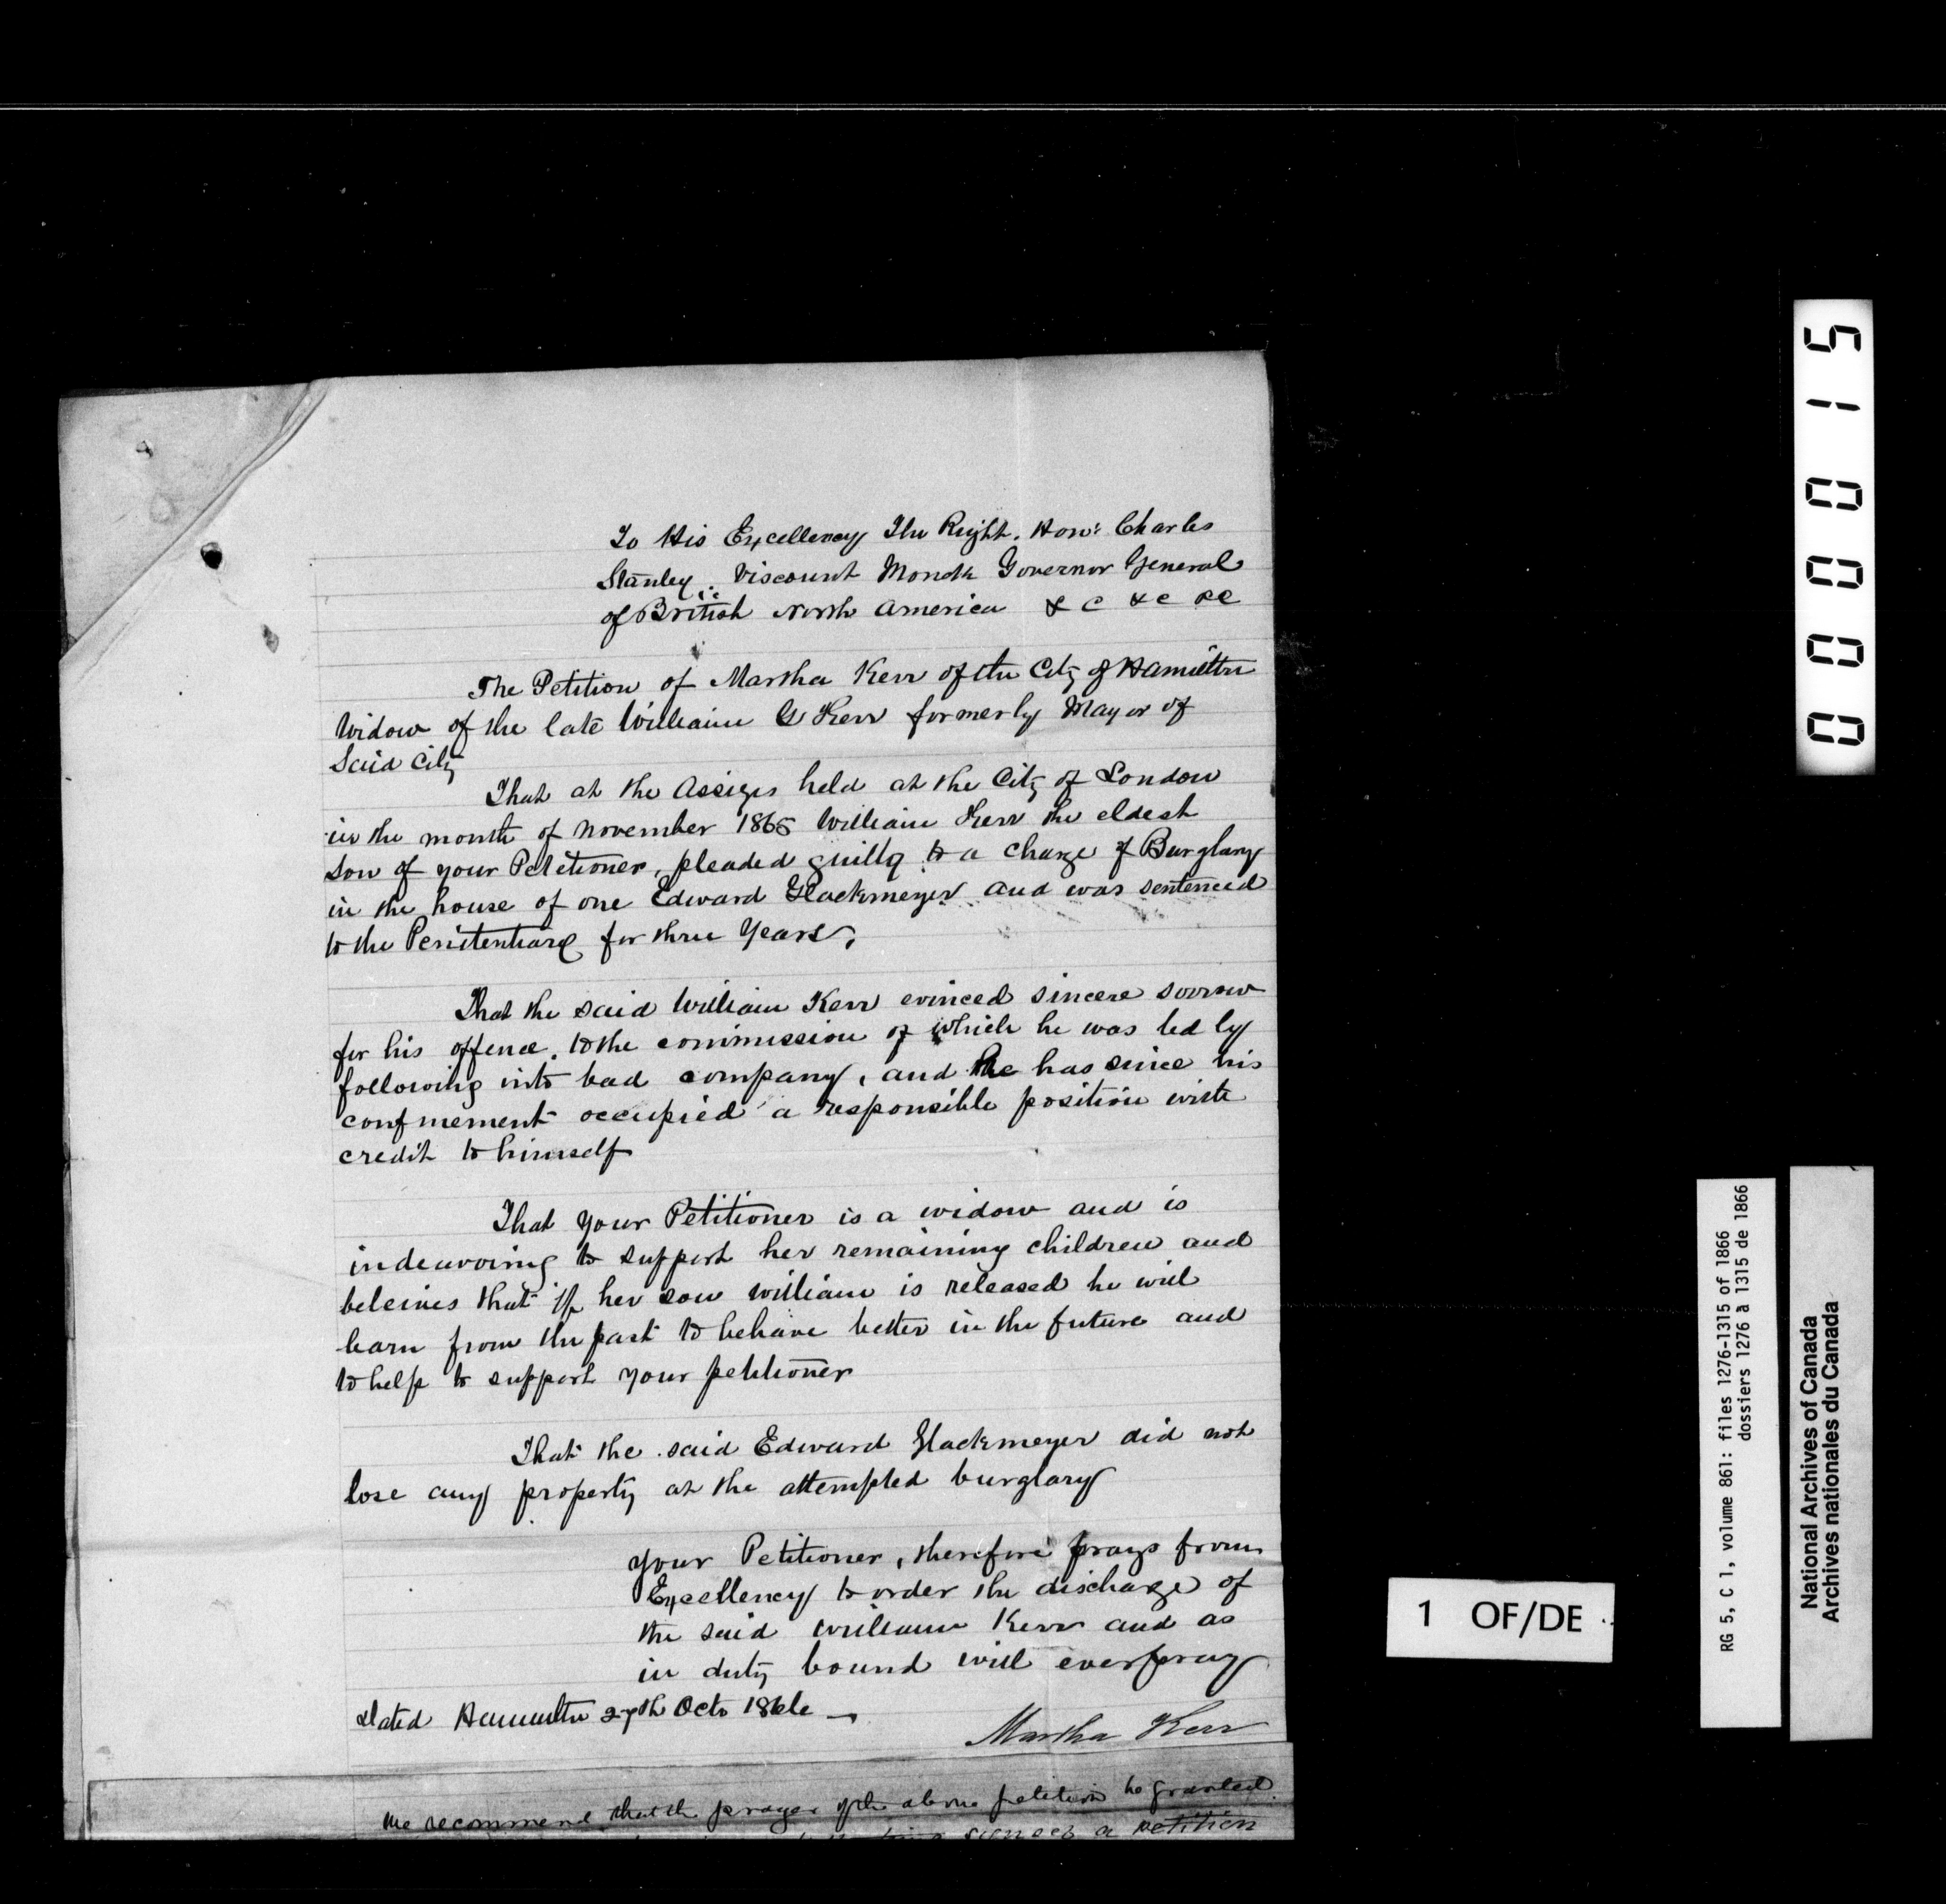 To His Excellency The Right. Hon: Charles
Stanley. Viscount Monck Governor General
of British North America & C & C & C
The Petition of Martha Kerr of the City of Hamilton
Widow of the late William G Kerr formerly Mayor of
Said City
That at the Assizes held at the City of London
in the month of November 1865 William Kerr the eldest
son of your Petitioner, pleaded guilty to a charge of Burglary
in the house of one Edward Glackmeyer and was sentenced
to the Penitentiary for three Years,
That the said William Kerr evinced sincere sorrow
for his offence. to the commission of which he was led by
following into bad company, and he has since his
confinement occupied a responsible position with
credit to himself
That your Petitioner is a widow and is
indeavoring to support her remaining children and
beleives that if her son William is released he will
learn from the past to behave better in the future and
to help to support your petitioner
That the said Edward Glackmeyer did not
lose any property at the attempted burglary
your Petitioner, therefore prays from
Excellency to order the discharge of
the said William Kerr and as
in duty bound will ever pray
Dated Hamilton 27th Octo 1866 —
Martha Kerr
We recommend that the prayer of the above petition be granted.
signed a petition
00015
1 OF/DE
RG 5, C 1, volume 861: files 1276-1315 of 1866
dossiers 1276 à 1315 de 1866
National Archives of Canada
Archives nationales du Canada